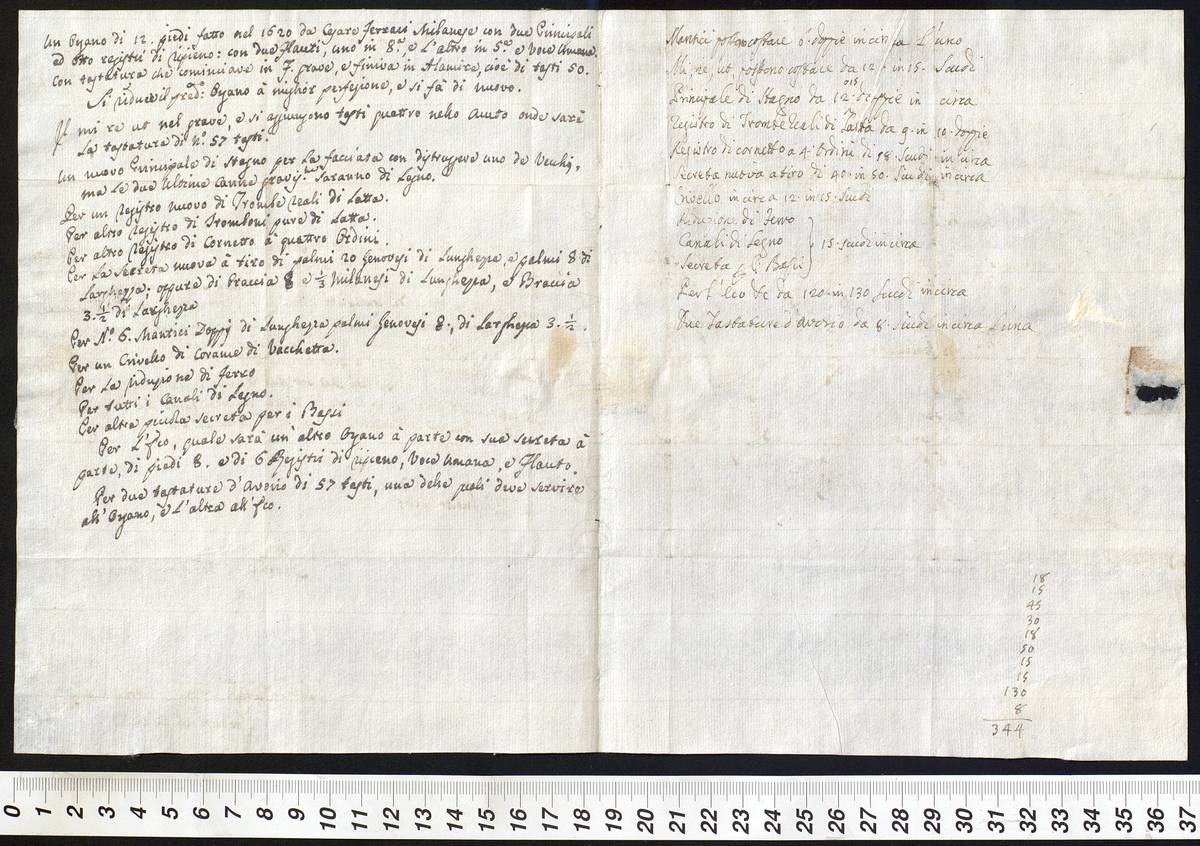 Un Organo di 12. piedi fatto nel 1620 da Cesare Ferrari Milanese con due Principali
ed otto registri di ripieno: con due Flauti, uno in 8.ª, e L'altro in 5.ª e Voce Umana.
Con tastatura che cominciava in F. grave, e finiva in Alamire, cioè di tasti 50.
Si riduce il pred.º Organo à miglior perfezione, e si fà di nuovo.
Il mi re ut nel grave, e si aggiungono tasti quattro nello Acuto onde sarà
La tastatura di n.º 57 tasti.
Un nuovo Principale di Stagno per La facciata con distruggere uno de Vecchj,
ma Le due Ultime Canne gravj. Saranno di Legno.
Per un Registro nuovo di Trombe Reali di Latta.
Per altro Registro di Tromboni pure di Latta.
Per altro Registro di Cornetto à quattro Ordini.
Per La Secreta nuova à tiro di palmi 20 Genovesi di Lunghezza, e palmi 8 di
Larghezza; oppure di braccia 8 e 1/3 Milanesi di Lunghezza, e Braccia
3. 1/2 di Larghezza
Per N.º 6. Mantici Doppj di Lunghezza palmi Genovesi 8., di Larghezza 3. 1/2.
Per un Crivello di Corame di Vacchetta.
Per La riduzione di Ferro
Per tutti i Canali di Legno.
Per altra piccola secreta per i Bassi
Per L'Eco, quale sarà un'altro Organo à parte con sua secreta à
parte, di piedi 8. e di 6 Registri di ripieno, Voce Umana, e Flauto.
Per due tastature d'Avorio di 57 tasti, una delle quali deve servire
all'Organo, e L'altra all'Eco.
Mantici possono costare 6. doppie in circa L'uno
Mi, re, ut possono costare da 12. in 15. Scudi
Principale di Stagno da 12. 015 doppie in circa
Registro di Trombe Reali di Latta da 9. in 10. doppie
Registro di cornetto a 4. Ordini di 18. Scudi in circa
Secreta nuova a tiro di 40. in 50. Scudi in circa
Crivello in circa 12. in 15. Scudi
Riduzione di Ferro
Canali di Legno
Secreta p. li Bassi
15. scudi in circa
Per L'Eco &c da 120. in 130 Scudi in circa
Due Tastature d'Avorio da 8. Scudi in circa L'una
18
15
45
30
18
50
15
15
130
8
344